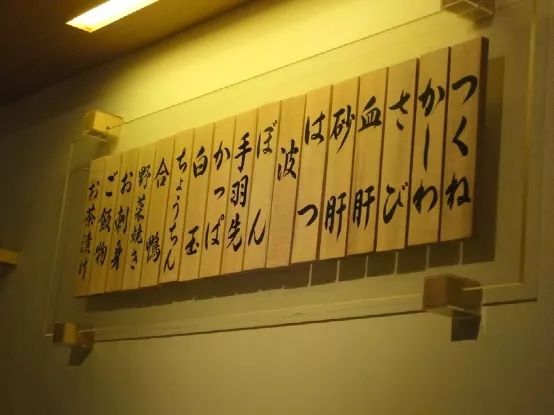 つくね
かしわ
さび
血肝
砂肝
はつ
波
ぼん
手羽先
かっぱ
白玉
ちょうちん
合鴨
野菜焼き
お刺身
ご飯物
お茶漬け